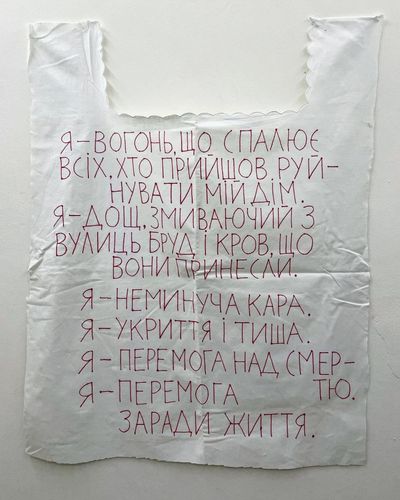 Я – ВОГОНЬ, ЩО СПАЛЮЄ
ВСІХ, ХТО ПРИЙШОВ РУЙ-
НУВАТИ МІЙ ДІМ.
Я – ДОЩ, ЗМИВАЮЧИЙ З
ВУЛИЦЬ БРУД І КРОВ, ЩО
ВОНИ ПРИНЕСЛИ.
Я – НЕМИНУЧА КАРА.
Я – УКРИТТЯ І ТИША.
Я – ПЕРЕМОГА НАД СМЕР-
ТЮ.
Я – ПЕРЕМОГА
ЗАРАДИ ЖИТТЯ.